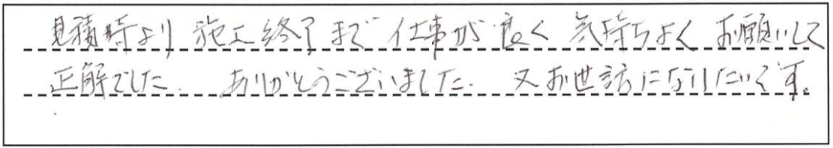 見積時より施工終了まで仕事が良く気持ちよくお願いして
正解でした。ありがとうございました。又お世話になりたいです。